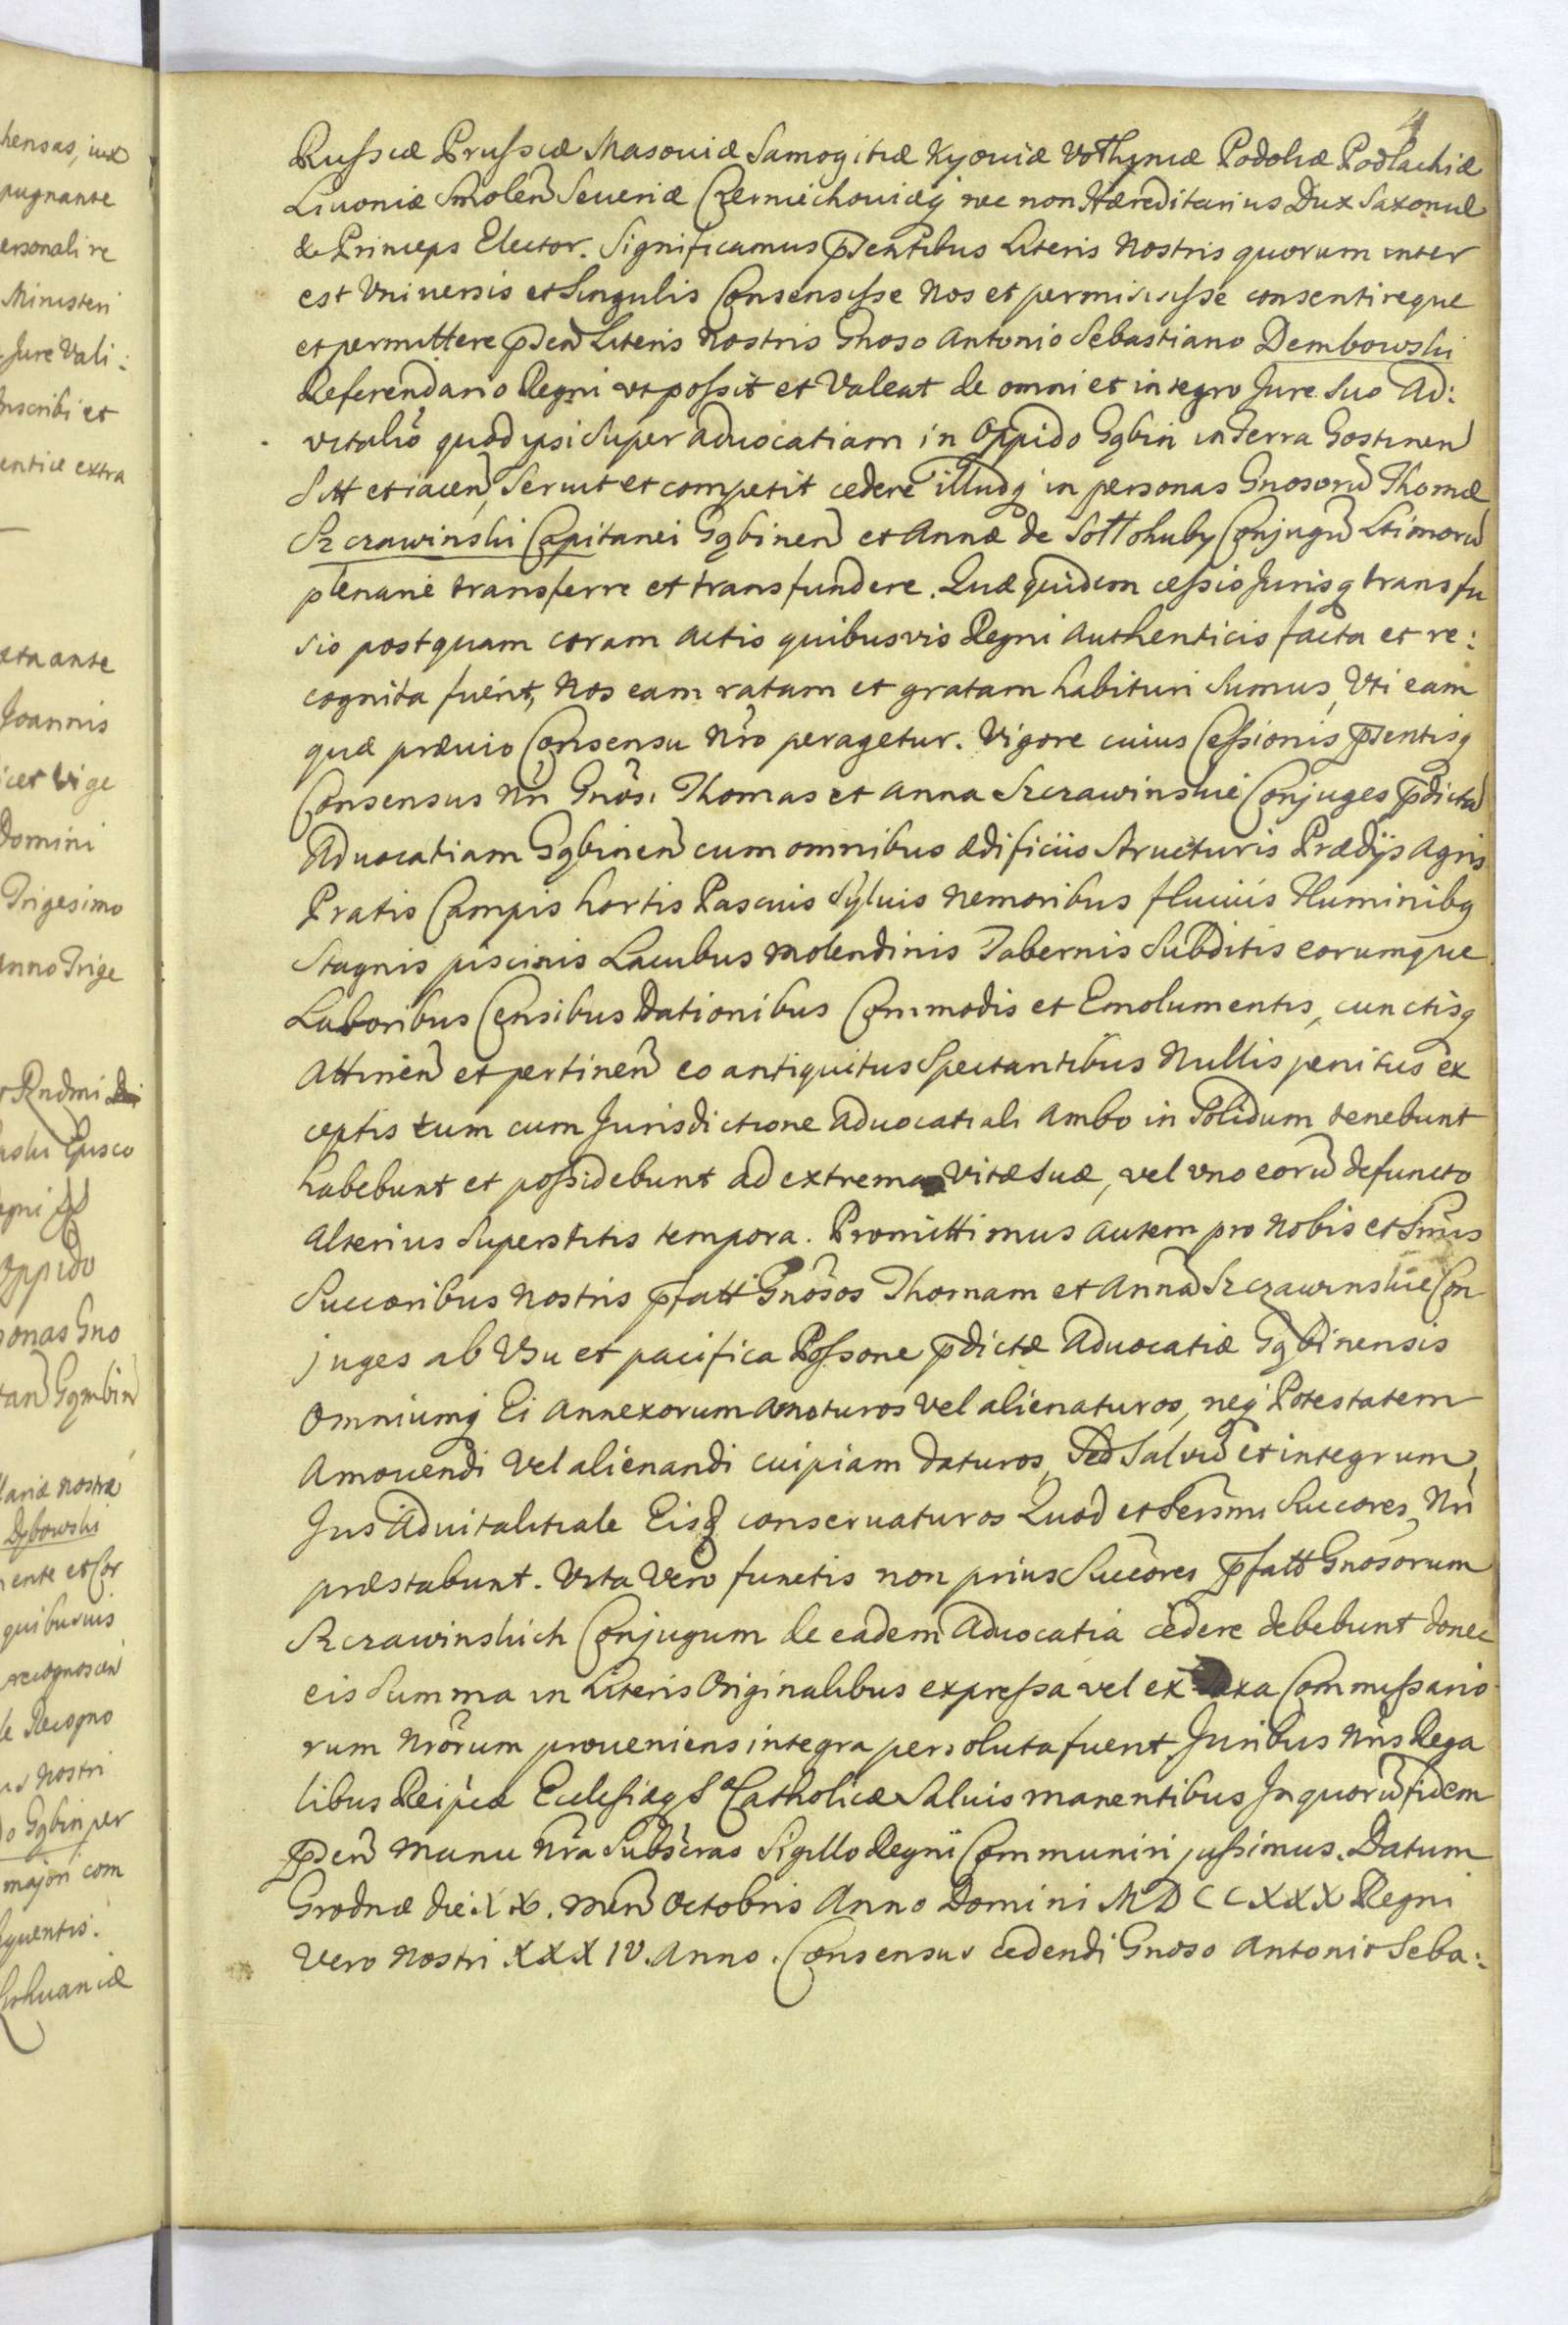 4
hensas, iux
pugnante
ersonali re
Ministeri
Jure Vali:
nscribi et
entiæ extra
Joannis
icet Vige
Domini
Trigesimo
Anno Trige
Rndmi
Oppido
sonas Gno
Gąmbin
lariæ nostræ
Dębowski
ente et Cor
quibusuis
recognoscen
e Recogno
us Nostri
o Gąbin per
majori com
quentis.
Lithuaniæ
Russiæ Prussiæ Masoviæ Samogitiæ Kyoviæ Volhyniæ Podoliæ Podlachiæ
Livoniæ Smolen̄ Severiæ Czerniechoviæq; nec non Hæreditarius Dux Saxoniæ
& Princeps Elector. Significamus p̄sentibus Literis Nostris quorum inter
est Universis et Singulis Consensisse Nos et permisisse consentireque
et permittere p̄sen̄ Literis Nostris Gnoso Antonio Sebastiano Dembowski
Referendario Regni ut possit et Valeat de omni et integro Jure Suo Ad:
vitalio quod ipsi Super Advocatiam in Oppido Gąbin in Terra Gostinen̄
Sitt et iacen̄, Servit et competit cedere illudq; in personas Gnosorū Thomæ
Szczawinski Capitanei Gąbinen̄ et Annæ de Sołłohuby Conjugū Ltimorū
plenarie transferre et transfundere. Quæ quidem cessio Jurisq; transfu
sio postquam coram Actis quibusvis Regni Authenticis facta et re:
cognita fuerit, Nos eam ratam et gratam habituri Sumus, Uti eam
quæ prævio Consensu Nrō peragetur. Vigore cuius Cessionis p̄sentisq;
Consensus Nri Gnosi Thomas et Anna Szczawinskie Conjuges p̄dictā
Advocatiam Gąbinen̄ cum omnibus ædificiis Structuris Prædijs Agris
Pratis Campis hortis Pascuis Sylvis Nemoribus fluviis Fluminibq;
Stagnis piscinis Lacubus Molendinis Tabernis Subditis eorumque
Laboribus Censibus Dationibus Commodis et Emolumentis, cunctisq;
Attinen̄ et pertinen̄ eo antiquitus Spectantibus Nullis penitus ex
ceptis tum cum Jurisdictione Advocatiali Ambo in Solidum tenebunt
habebunt et possidebunt ad extrema Vitæ Suæ, vel uno eorū defuncto
Alterius Superstitis tempora. Promittimus autem pro Nobis et Srmis
Succoribus Nostris p̄fatt Gnosos Thomam et Annā Szczawinskie Con
juges ab Usu et pacifica Possone p̄dictæ Advocatiæ Gąbinensis
Omniumq; Ei Annexorum Amoturos Vel alienaturos, neq; Potestatem
Amovendi Vel alienandi cuipiam daturos, Sed Salvū et integrum
Jus Advitalitiale Eisq; conservaturos Quod et Sersmi Succores Nri
præstabunt. Vita Vero functis non prius Succores p̄fatt Gnosorum
Szczawinskich Conjugum de eadem Advocatia cedere debebunt donec
eis Summa in Literis Originalibus expressa vel ex Taxa Commissario
rum Nrorum proveniens integra persoluta fuerit, Juribus Nris Rega
libus Reipcæ Ecclesiæq; S. Catholicæ Salvis manentibus In quorū fidem
p̄sen̄ Manu Nra Subscras Sigillo Regni Communiri jussimus. Datum
Grodnæ die XX. Men̄ Octobris Anno Domini MDCCXXX Regni
Vero Nostri XXXIV. Anno. Consensus cedendi Gnoso Antonio Seba: